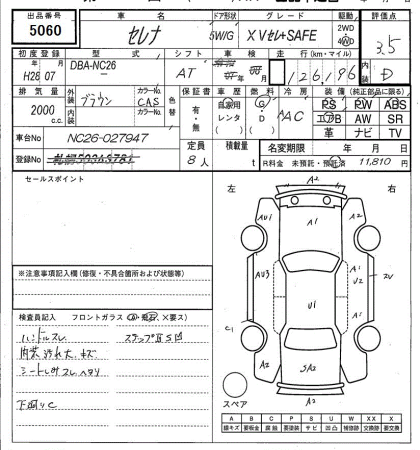 出品番号 車名 ドア形状 グレード 駆動 評価点
5060 セレナ 5W/G XVセレ+SAFE 2WD 4WD 3.5
初度登録 型式 シフト 車検 走行(km・マイル) 内装
H28 07 DBA-NC26 AT 126,196 D
排気量 外装色 カラーNo. 内装色 カラーNo. 色替 保証書 車歴 燃料 冷房 装備(純正部品に限る)
2000 c.c. ブラウン CAS 有・無 自家用 レンタ ( ) G・D ( ) AAC PS PW ABS
エアB AW SR
革 ナビ TV
車台No NC26-027947 定員 積載量 名変期限 年 月 日
登録No 8人 t R料金 未預託・預託済 11,810 円
セールスポイント 左 右
A2
AU1 A1
A1
AU3 U2 2U
U1
C1
A2 SA2 A2
A2
スペア
※注意事項記入欄(修復・不具合箇所および状態等)
検査員記入 フロントガラス ×要ス)
ハンドルスレ ステップ
内装汚れ大 キズ
シートしみスレヘタリ
下廻りC
A B C P S U W X XX
線キズ 要板金 腐蝕 要塗装 サビ 凹凸 補修跡 交換跡 要交換